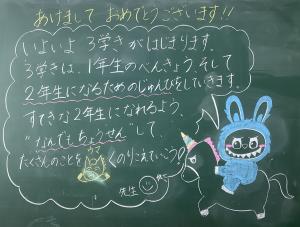 あけまして おめでとうございます!!
いよいよ 3学きがはじまります。
3学きは、1年生のべんきょう、そして
2年生になるためのじゅんびをしていきます。
すてきな2年生になれるよう、
"なんでもちょうせん"して、
たくさんのことを のりこえていこう!
先生